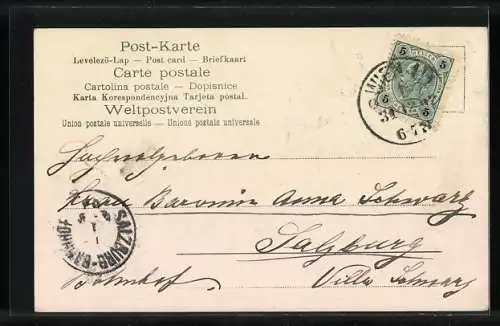 Post-Karte
Levelező-Lap — Post card — Briefkaart
Carte postale
Cartolina postale — Dopisnice
Karta Korespondencyjna Tarjeta postal.
Weltpostverein
Union postale universelle — Unione postale universale
5 5
5 5
31
6-7
Hochwohlgeboren
Baronin Anna Schwarz
Salzburg
SALZBURG-BAHNHOF
Bahnhof Villa Schwarz